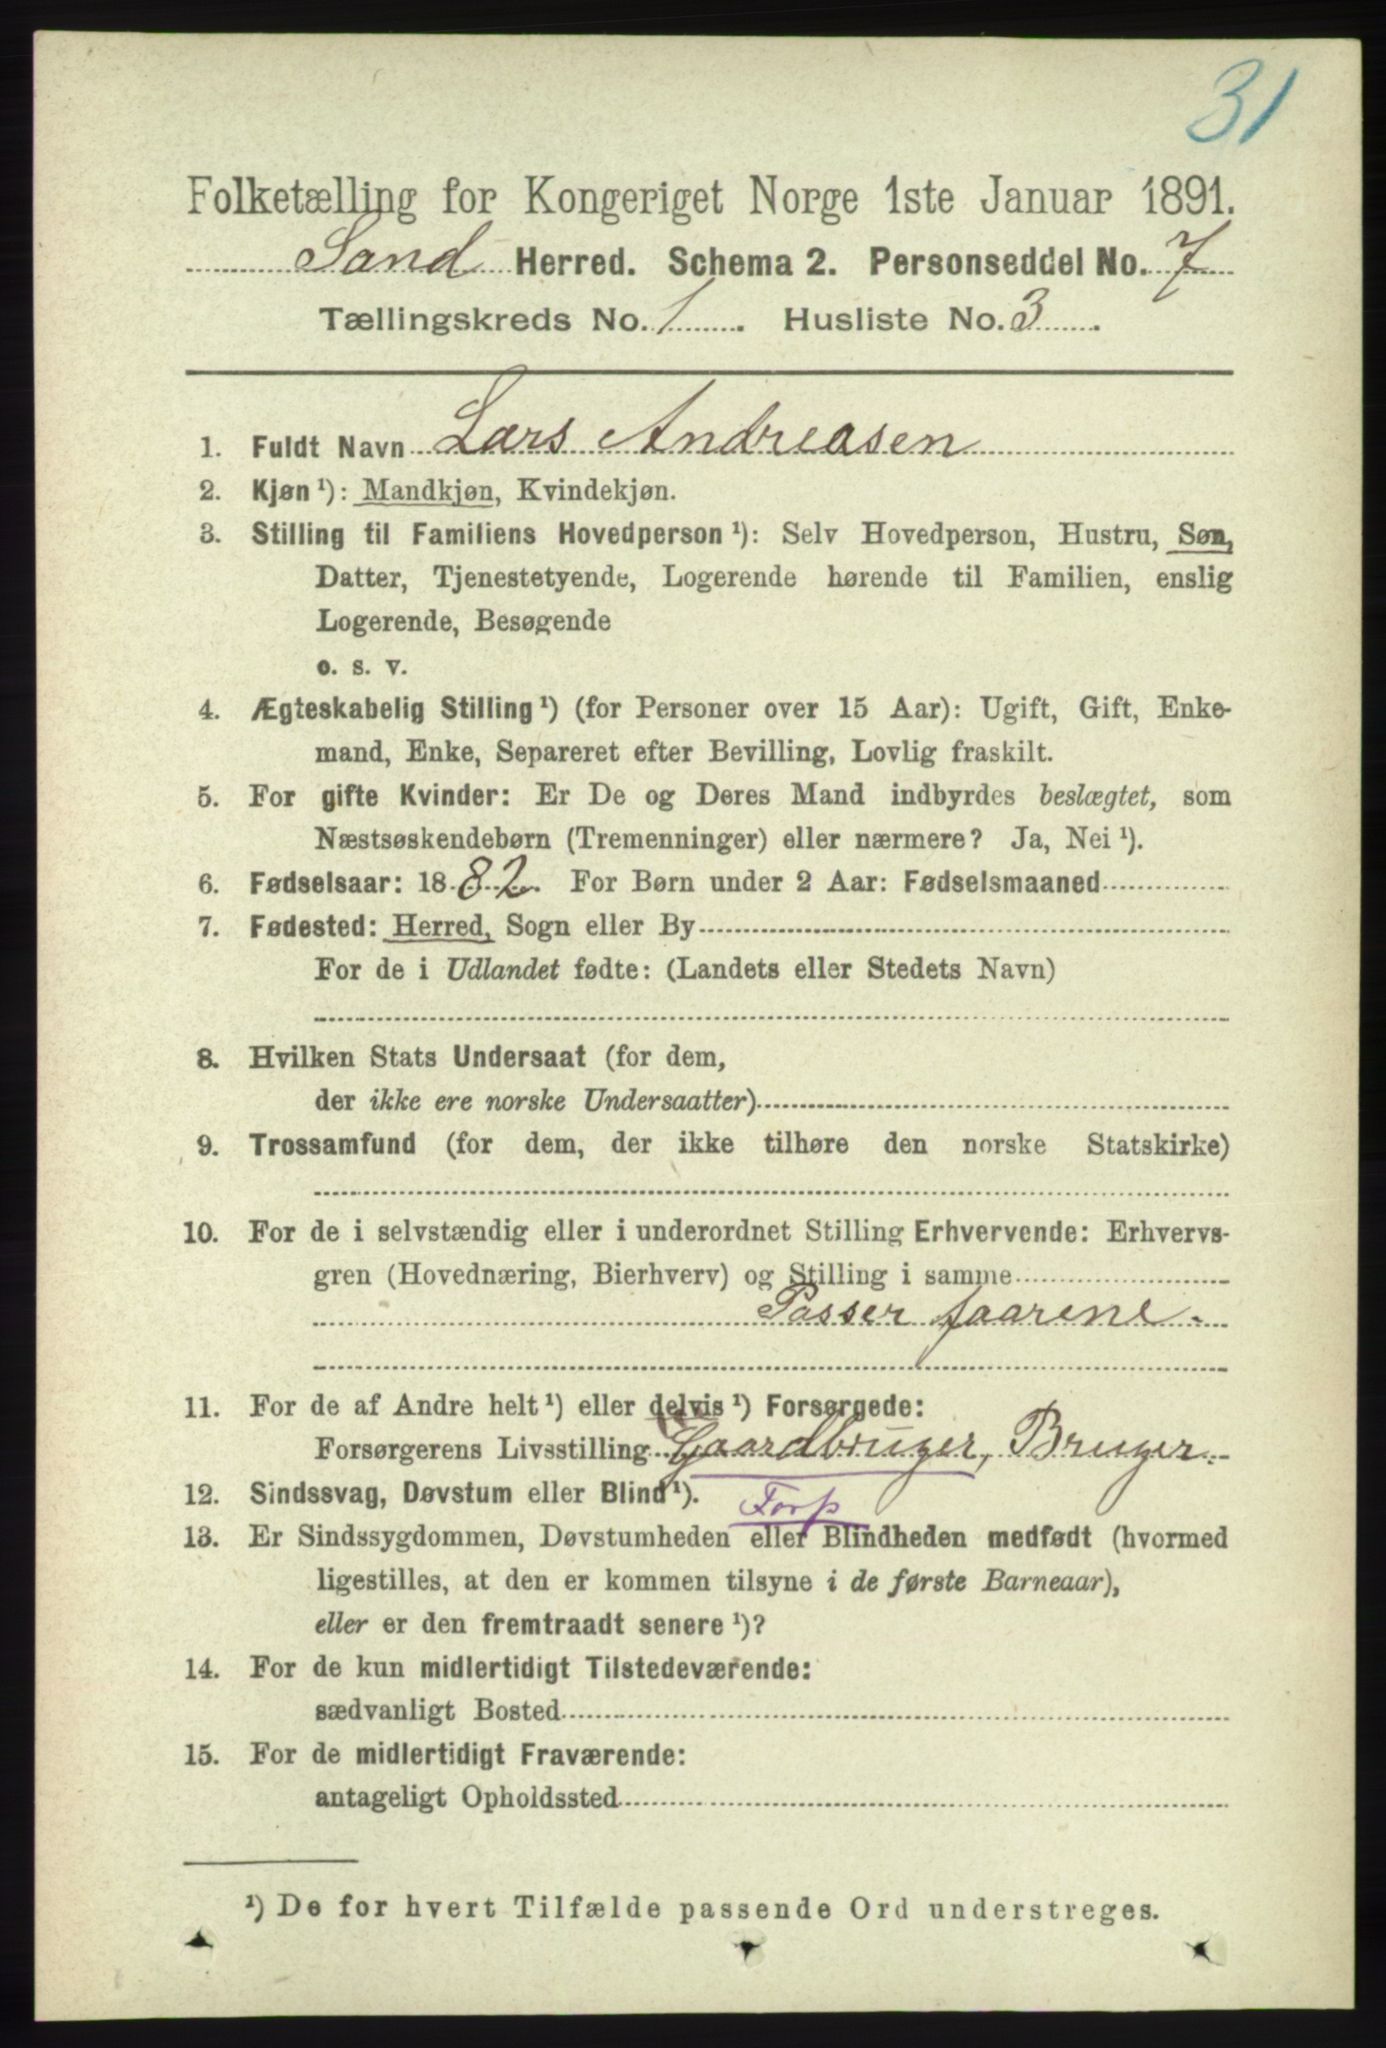 31
Folketælling for Kongeriget Norge 1ste Januar 1891.
Sand Herred. Schema 2. Personseddel No. 7
Tællingskreds No. 1. Husliste No. 3.
1. Fuldt Navn Lars Andreasen
2. Kjøn ¹): Mandkjøn, Kvindekjøn.
3. Stilling til Familiens Hovedperson ¹): Selv Hovedperson, Hustru, Søn,
Datter, Tjenestetyende, Logerende hørende til Familien, enslig
Logerende, Besøgende
o. s. v.
4. Ægteskabelig Stilling ¹) (for Personer over 15 Aar): Ugift, Gift, Enke-
mand, Enke, Separeret efter Bevilling, Lovlig fraskilt.
5. For gifte Kvinder: Er De og Deres Mand indbyrdes beslægtet, som
Næstsøskendebørn (Tremenninger) eller nærmere? Ja, Nei ¹).
6. Fødselsaar: 1882. For Børn under 2 Aar: Fødselsmaaned
7. Fødested: Herred, Sogn eller By
For de i Udlandet fødte: (Landets eller Stedets Navn)
8. Hvilken Stats Undersaat (for dem,
der ikke ere norske Undersaatter)
9. Trossamfund (for dem, der ikke tilhøre den norske Statskirke)
10. For de i selvstændig eller i underordnet Stilling Erhvervende: Erhvervs-
gren (Hovednæring, Bierhverv) og Stilling i samme
Passer faarene.
11. For de af Andre helt ¹) eller delvis ¹) Forsørgede:
Forsørgerens Livsstilling Gaardbruger, Bruger.
12. Sindssvag, Døvstum eller Blind ¹).
Forp
13. Er Sindssygdommen, Døvstumheden eller Blindheden medfødt (hvormed
ligestilles, at den er kommen tilsyne i de første Barneaar),
eller er den fremtraadt senere ¹)?
14. For de kun midlertidigt Tilstedeværende:
sædvanligt Bosted
15. For de midlertidigt Fraværende:
antageligt Opholdssted
¹) De for hvert Tilfælde passende Ord understreges.